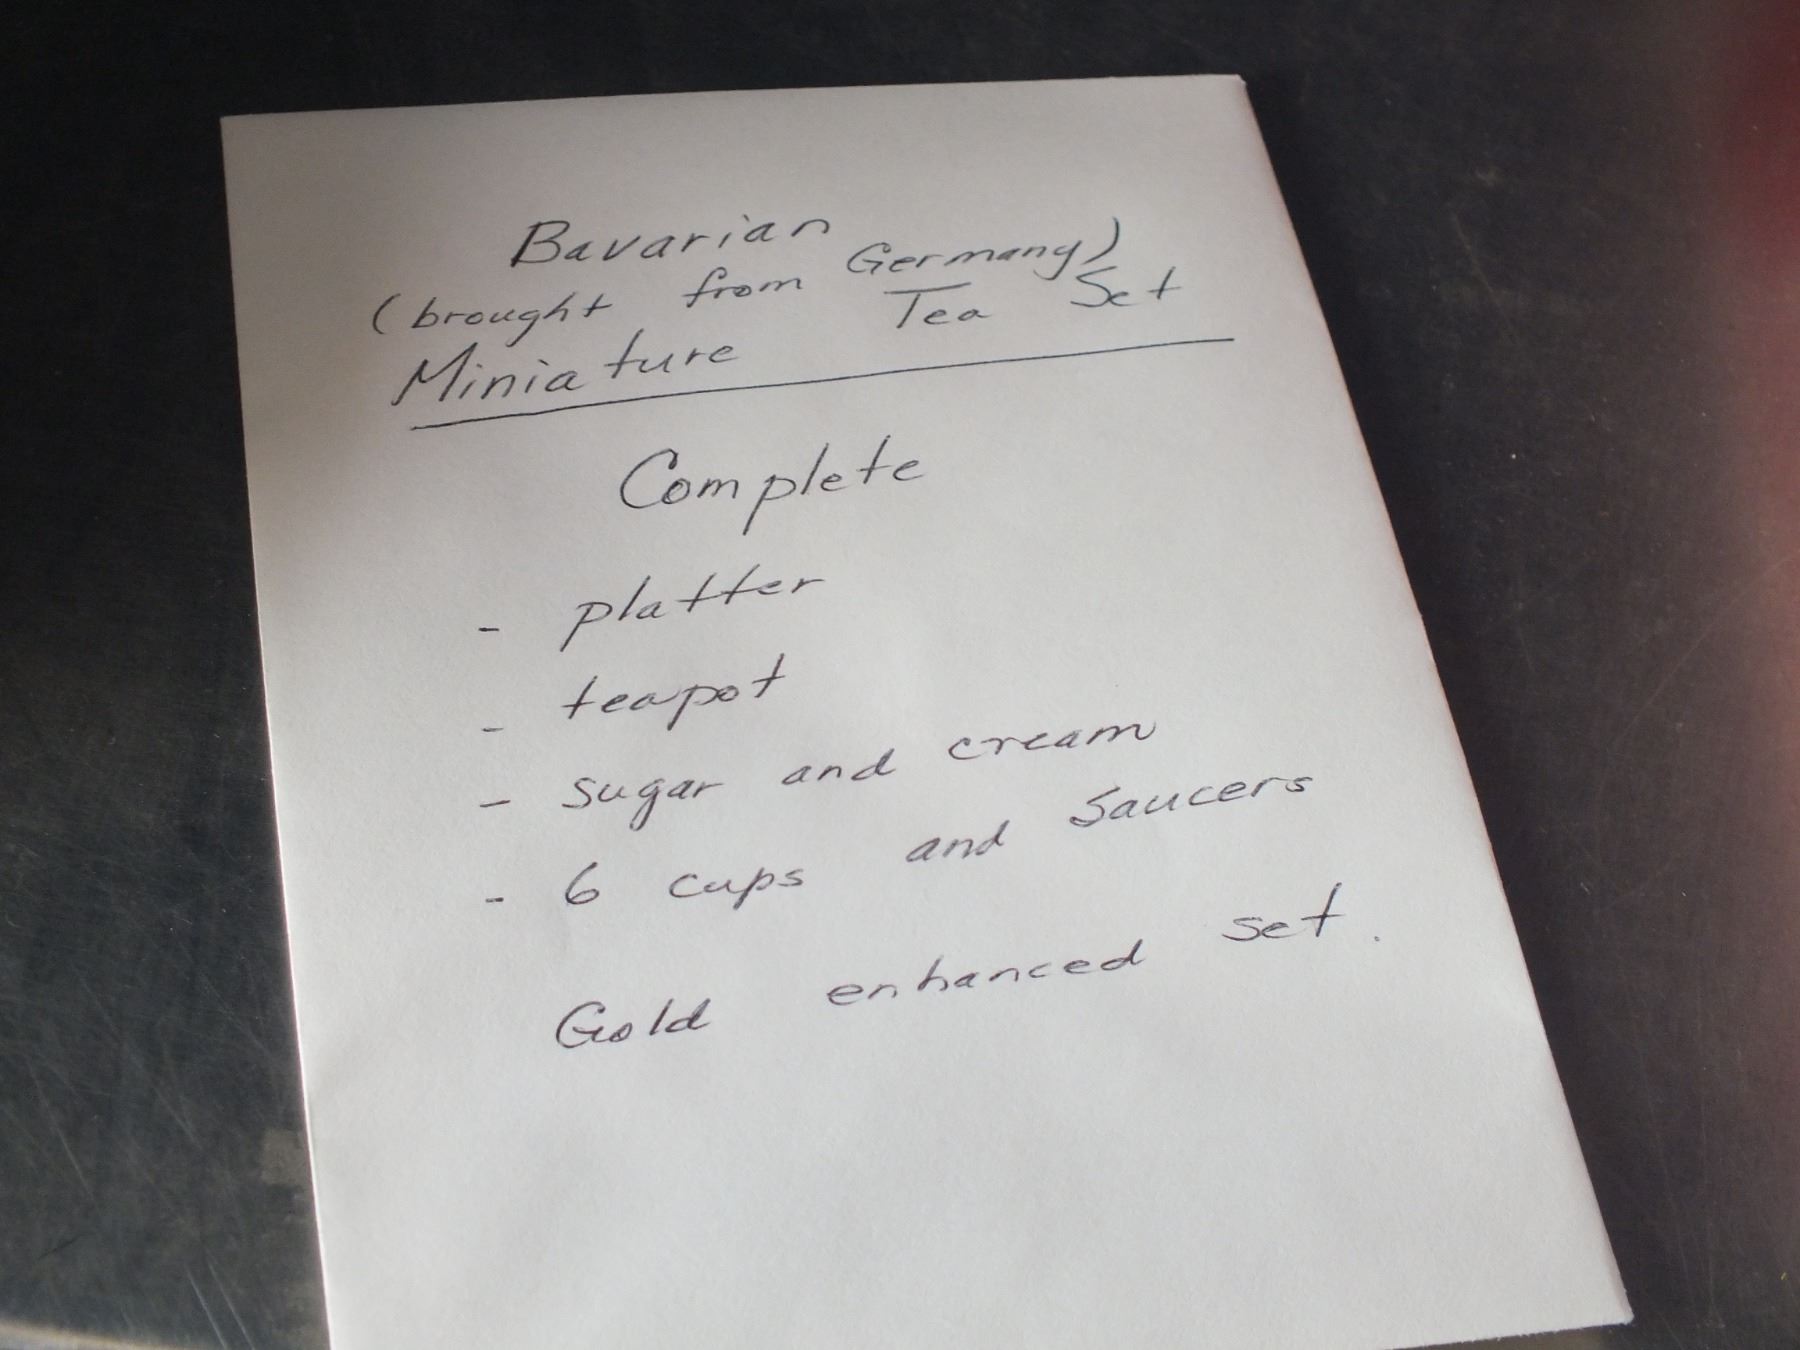 Bavarian
(brought from Germany)
Miniature Tea Set
Complete
- platter
- teapot
- sugar and cream
- 6 cups and saucers
Gold enhanced set.